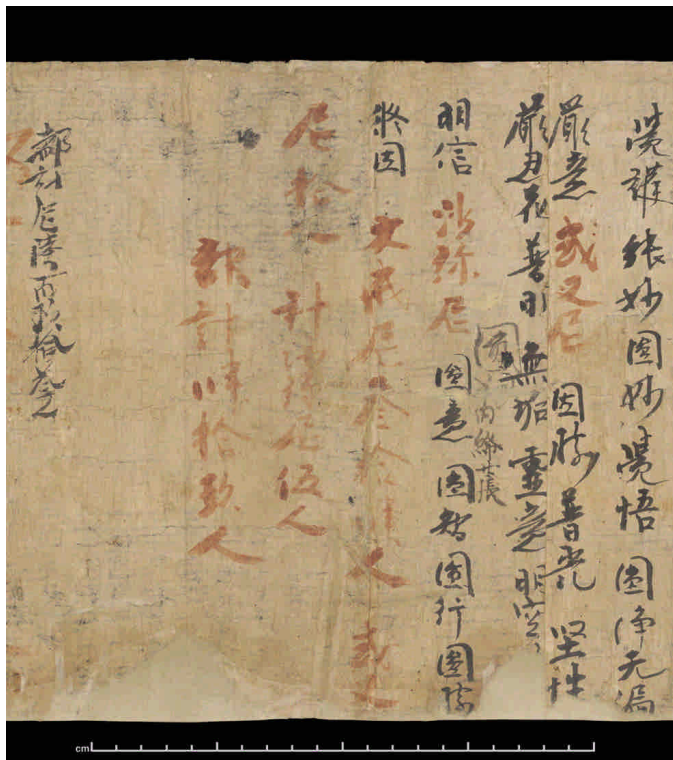 覺護 妙 圓妙 覺悟 圓淨 无漏
嚴意 式叉尼 因勝 普光 堅性
嚴忍 花 普明 無垢 靈意 明空
内 張
明信 沙弥尼 圓意 圓智 圓行 圓勝
勝因 大戒尼叁拾肆人 式叉
尼拾人 計沙弥尼伍人
都計肆拾玖人
都計尼陸百玖拾叁人
cm